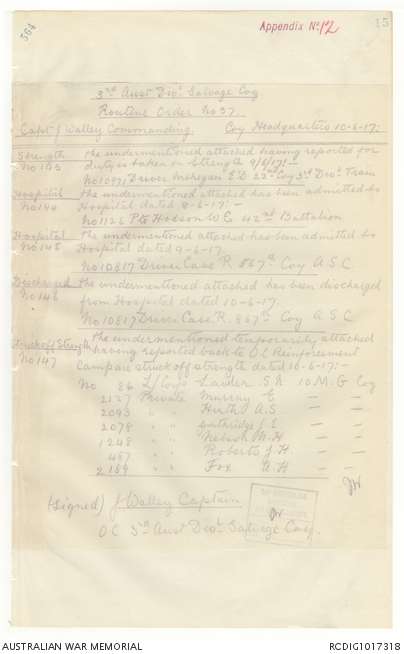 564
Appendix No 12
15
3rd Aust Divl Salvage Coy
Routine Order No 37.
Capt J Walley Commanding. Coy Headquarters 10-6-17.
Strength No 143 The undermentioned attached having reported for
duty is taken on Strength 9/6/17:-
No 10971 Driver E.D. 22nd Coy 3rd Divl Train
Hospital No 144 The undermentioned attached has been admitted to
Hospital dated 8-6-17:-
No 1126 Pte Hobson W E 42nd Battalion
Hospital No 145 The undermentioned attached has been admitted to
Hospital dated 9-6-17.
No 10817 Driver Case R. 867th Coy A S C
Discharged No 146 The undermentioned attached has been discharged
from Hospital dated 10-6-17.
No 10817 Driver Case R. 867th Coy A S C
Struck off Strength No 147 The undermentioned temporarily attached
having reported back to O.C. Reinforcement
Camp are struck off strength dated 10-6-17:-
No 86 L/Cory Lauder S.A 10 M.G Coy
2127 Private Murray E — —
2093 " " A.S. — —
2078 " " J.E — —
1248 " " M.H — —
457 " " Roberts J H — —
2189 " " Fox A.H — —
JW
(Signed) J Walley Captain
OC 3rd Aust Divl Salvage Coy.
JW
AUSTRALIAN WAR MEMORIAL
RCDIG1017318